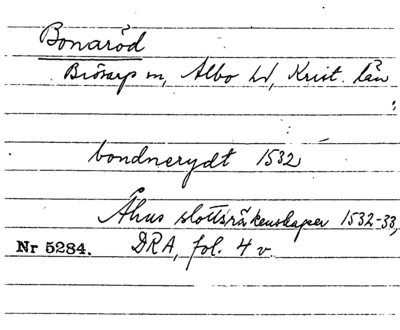 Bonaröd
Brösarp sn, Albo hd, Krist. län
bondnerydt 1532
Åhus slottsräkenskaper 1532-33,
Nr 5284. DRA, fol. 4 v